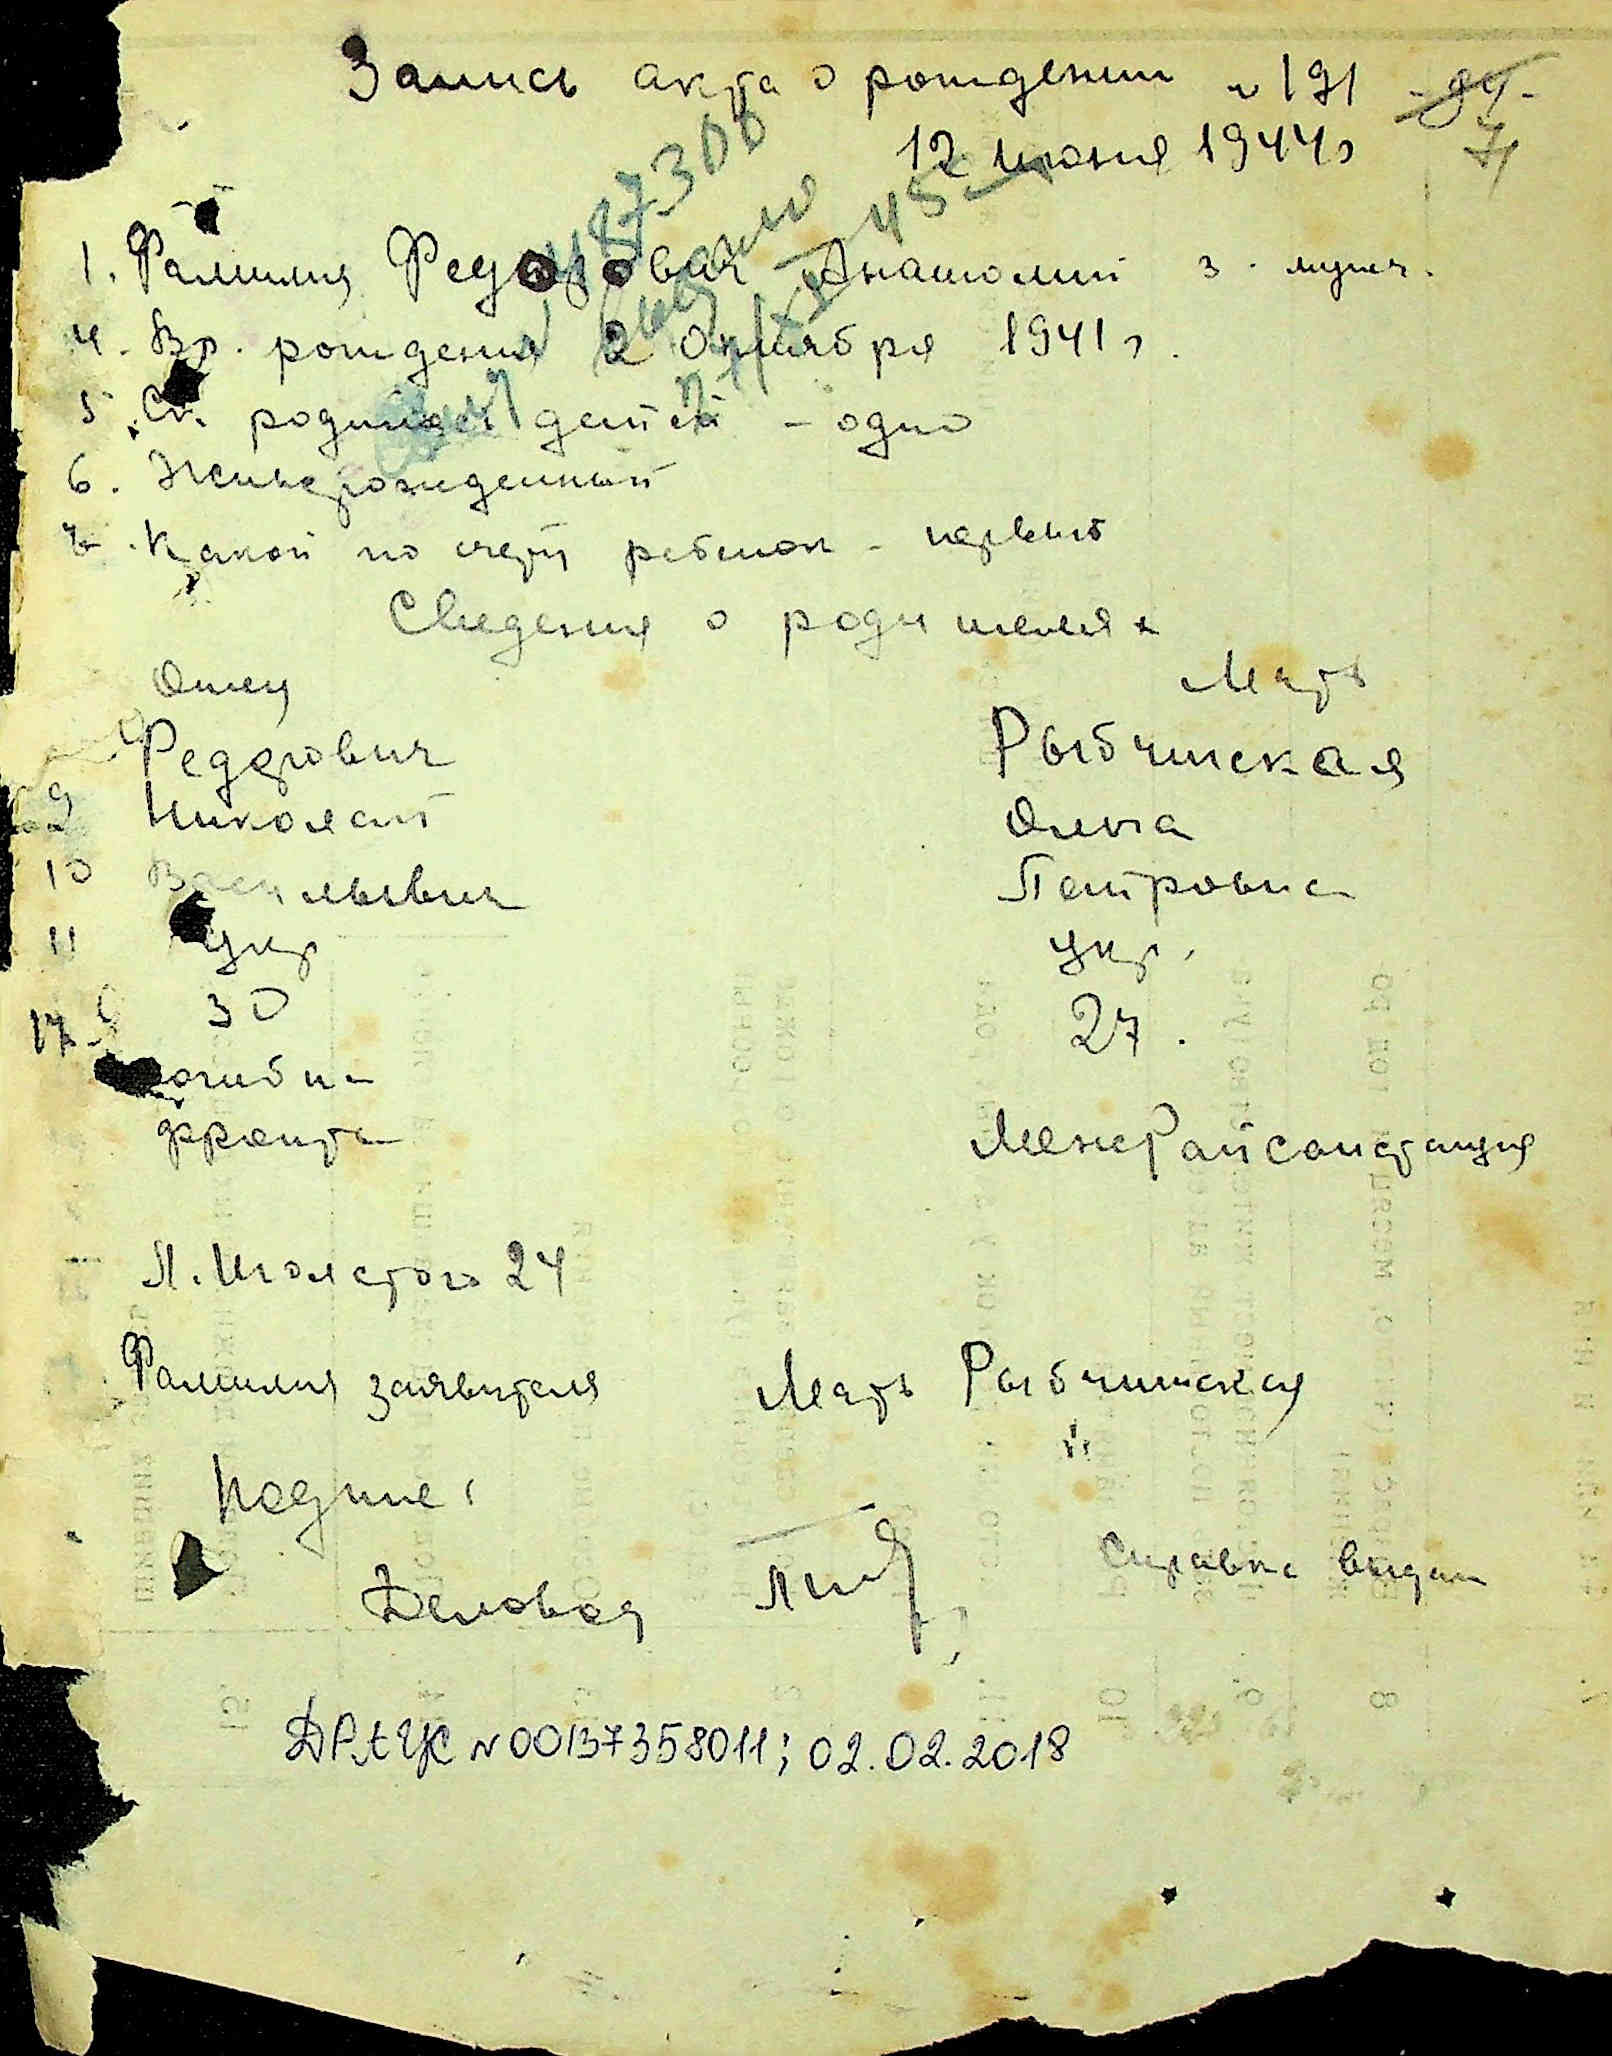 Запись акта о рождении № 191 - 84 -
71
12 июня 1944 г
1. Фамилия Федорович Анатолий 3. мужч.
4. Вр. рождения 2 Октября 1941 г.
5. Ск. родилось детей - одно
6. Живорожденный
7. Какой по счету ребенок - первый
Сведения о родителях
Отец Мать
Федорович Рыбчинская
9 Николай Ольга
10 Васильевич Петровна
11 укр укр.
30 27.
погиб на
фронте
МенРайсанстанция
Л. Толстого 24
Фамилия заявителя Мать Рыбчинская
Подпис.
Деловод Справка выдан
ДРАЦС № 00137358011; 02.02.2018